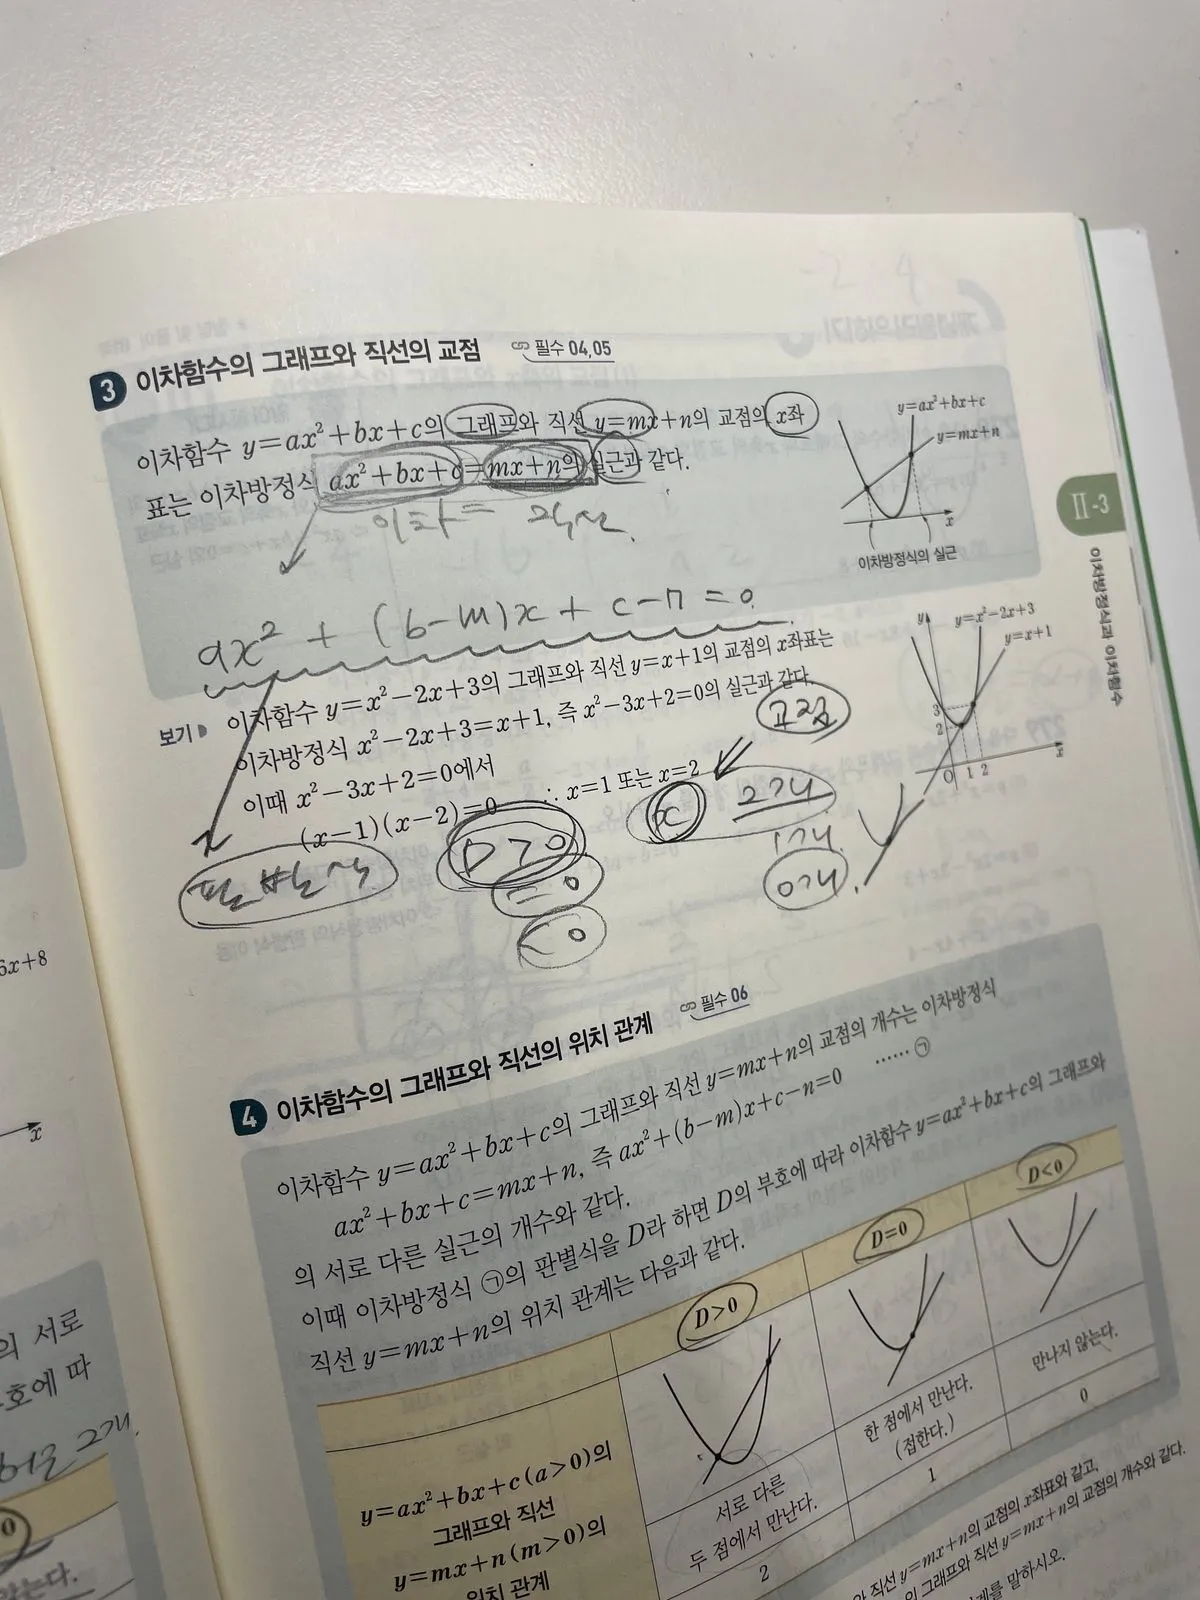 3 이차함수의 그래프와 직선의 교점 필수 04,05
이차함수 y=ax²+bx+c의 그래프와 직선 y=mx+n의 교점의 x좌
표는 이차방정식 ax²+bx+c=mx+n의 실근과 같다.
이차 = 직선.
ax² + (b-m)x + c-n = 0
y=ax²+bx+c
y=mx+n
x
이차방정식의 실근
II-3
이차방정식과 이차함수
보기 이차함수 y=x²-2x+3의 그래프와 직선 y=x+1의 교점의 x좌표는
이차방정식 x²-2x+3=x+1, 즉 x²-3x+2=0의 실근과 같다.
이때 x²-3x+2=0에서
(x-1)(x-2)=0 ∴ x=1 또는 x=2
y
y=x²-2x+3
y=x+1
3
2
0 1 2 x
교점
판별식 D>0 x 2개
=0 1개.
<0 0개.
6x+8
x
4 이차함수의 그래프와 직선의 위치 관계 필수 06
이차함수 y=ax²+bx+c의 그래프와 직선 y=mx+n의 교점의 개수는 이차방정식
ax²+bx+c=mx+n, 즉 ax²+(b-m)x+c-n=0 …… ㉠
의 서로 다른 실근의 개수와 같다.
이때 이차방정식 ㉠의 판별식을 D라 하면 D의 부호에 따라 이차함수 y=ax²+bx+c의 그래프와
직선 y=mx+n의 위치 관계는 다음과 같다.
D>0 D=0 D<0
y=ax²+bx+c (a>0)의
그래프와 직선
y=mx+n (m>0)의
위치 관계
서로 다른
두 점에서 만난다.
한 점에서 만난다.
(접한다.)
만나지 않는다.
2 1 0
직선 y=mx+n의 교점의 x좌표와 같고,
의 그래프와 직선 y=mx+n의 교점의 개수와 같다.
를 말하시오.
의 서로
호에 따
허근 2개.
0
않는다.